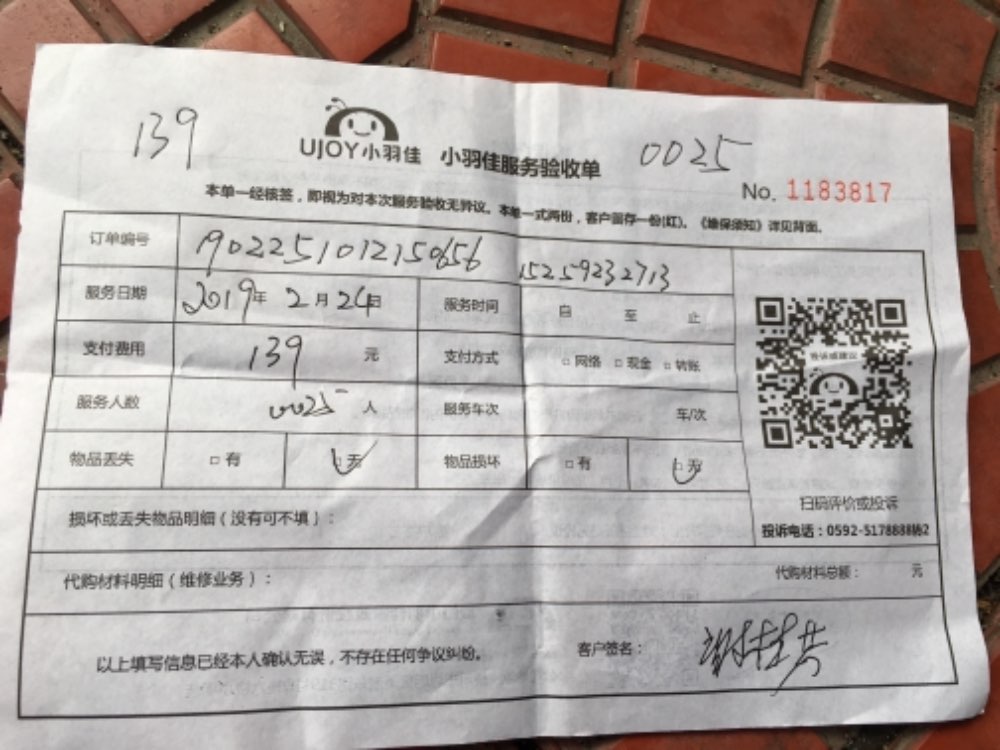 139
UJOY小羽佳 小羽佳服务验收单 0025
No. 1183817
本单一经核签，即视为对本次服务验收无异议。本单一式两份，客户留存一份(红)。《维保须知》详见背面。
订单编号 1902251012150656 15259232713
服务日期 2019年 2月24日 服务时间 自 至 止
支付费用 139 元 支付方式 □网络 □现金 □转账
投诉或建议
服务人数 0025 人 服务车次 车/次
物品丢失 □有 □无 物品损坏 □有 □无
扫码评价或投诉
损坏或丢失物品明细（没有可不填）：
投诉电话：0592-5178888转2
代购材料明细（维修业务）： 代购材料总额： 元
以上填写信息已经本人确认无误，不存在任何争议纠纷。 客户签名：